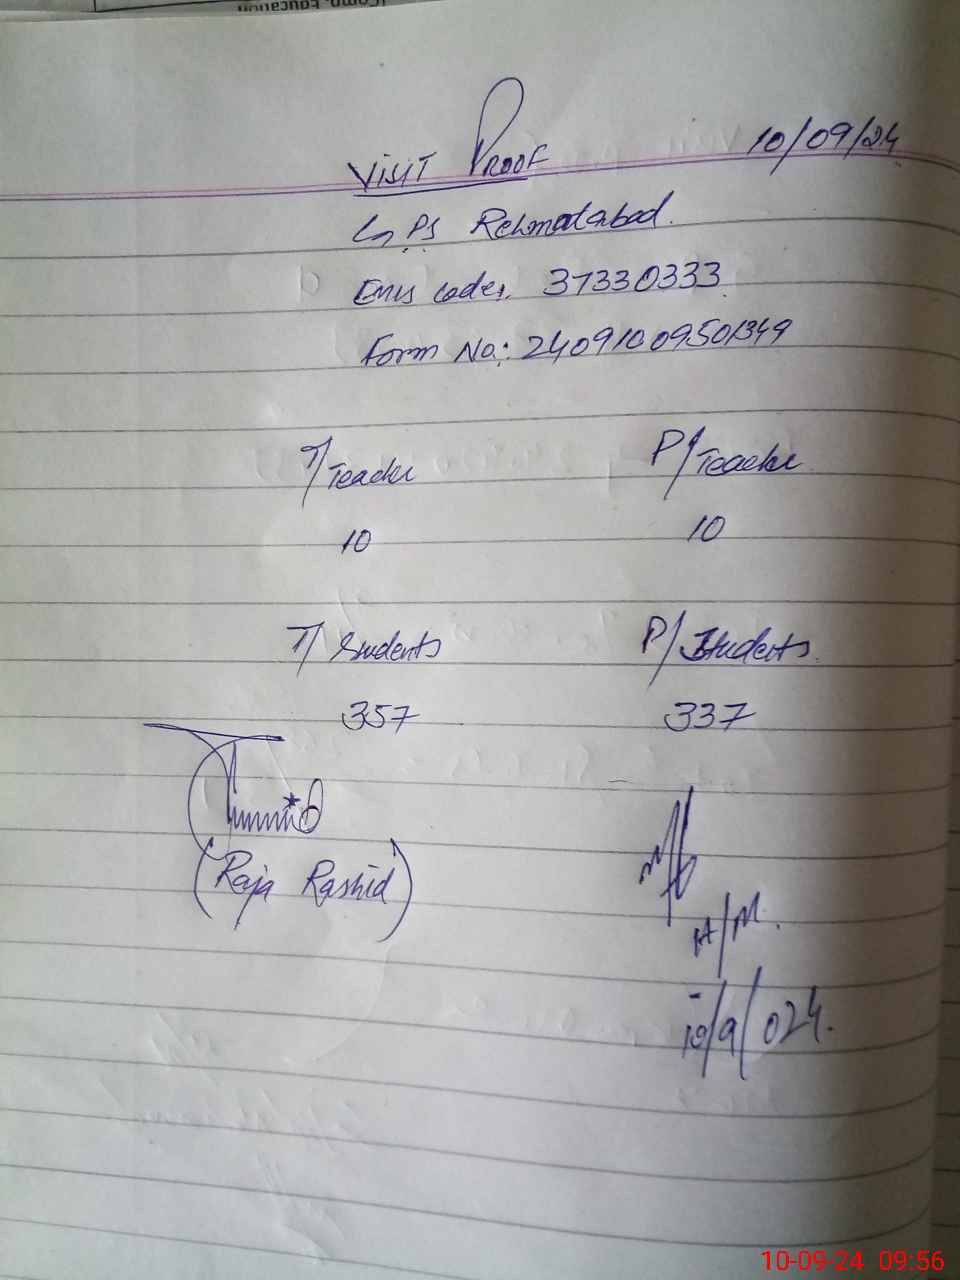 Visit Proof 10/09/24
G.PS Rehmatabad.
Emis code: 37330333
Form No: 24091009501349
T/Teacher P/Teacher
10 10
T/Students P/Students
357 337
(Raja Rashid)
H/M.
10/9/024.
10-09-24 09:56